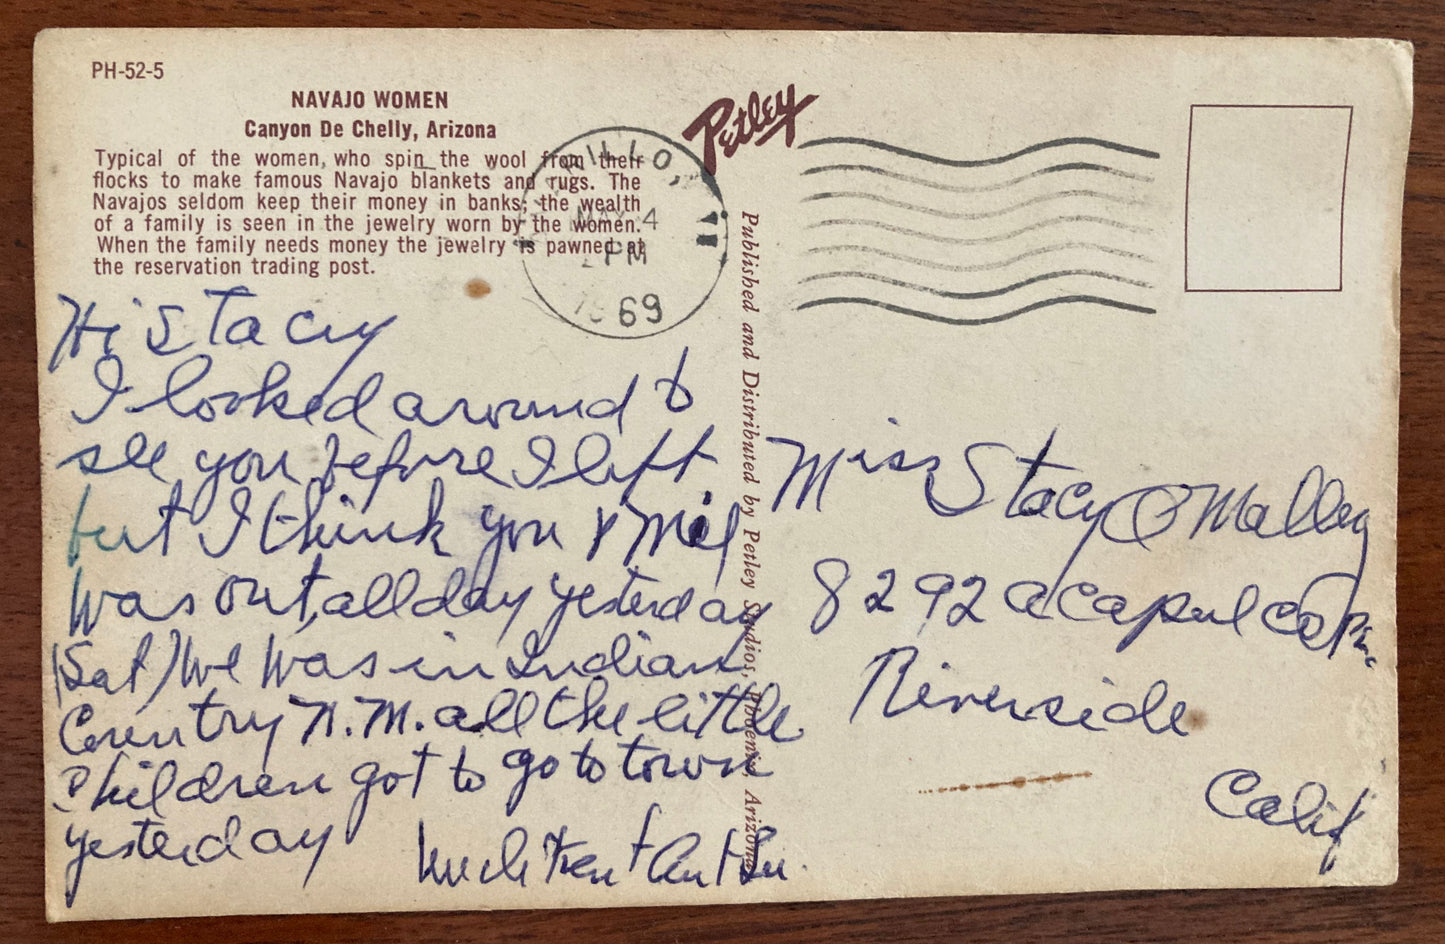 PH-52-5
NAVAJO WOMEN
Canyon De Chelly, Arizona
Typical of the women, who spin the wool from their
flocks to make famous Navajo blankets and rugs. The
Navajos seldom keep their money in banks; the wealth
of a family is seen in the jewelry worn by the women.
When the family needs money the jewelry is pawned at
the reservation trading post.
Petley
MAY 4
PM
1969
Published and Distributed by Petley Studios, Phoenix, Arizona
Hi Stacy
I looked around to
see you before I left
but I think you &
was out, all day yesterday
(Sat) we was in Indian
Country N.M. all the little
children got to go to town
yesterday
Uncle Trent
Miss Stacy O'Malley
8292 Acapulco
Riverside
Calif